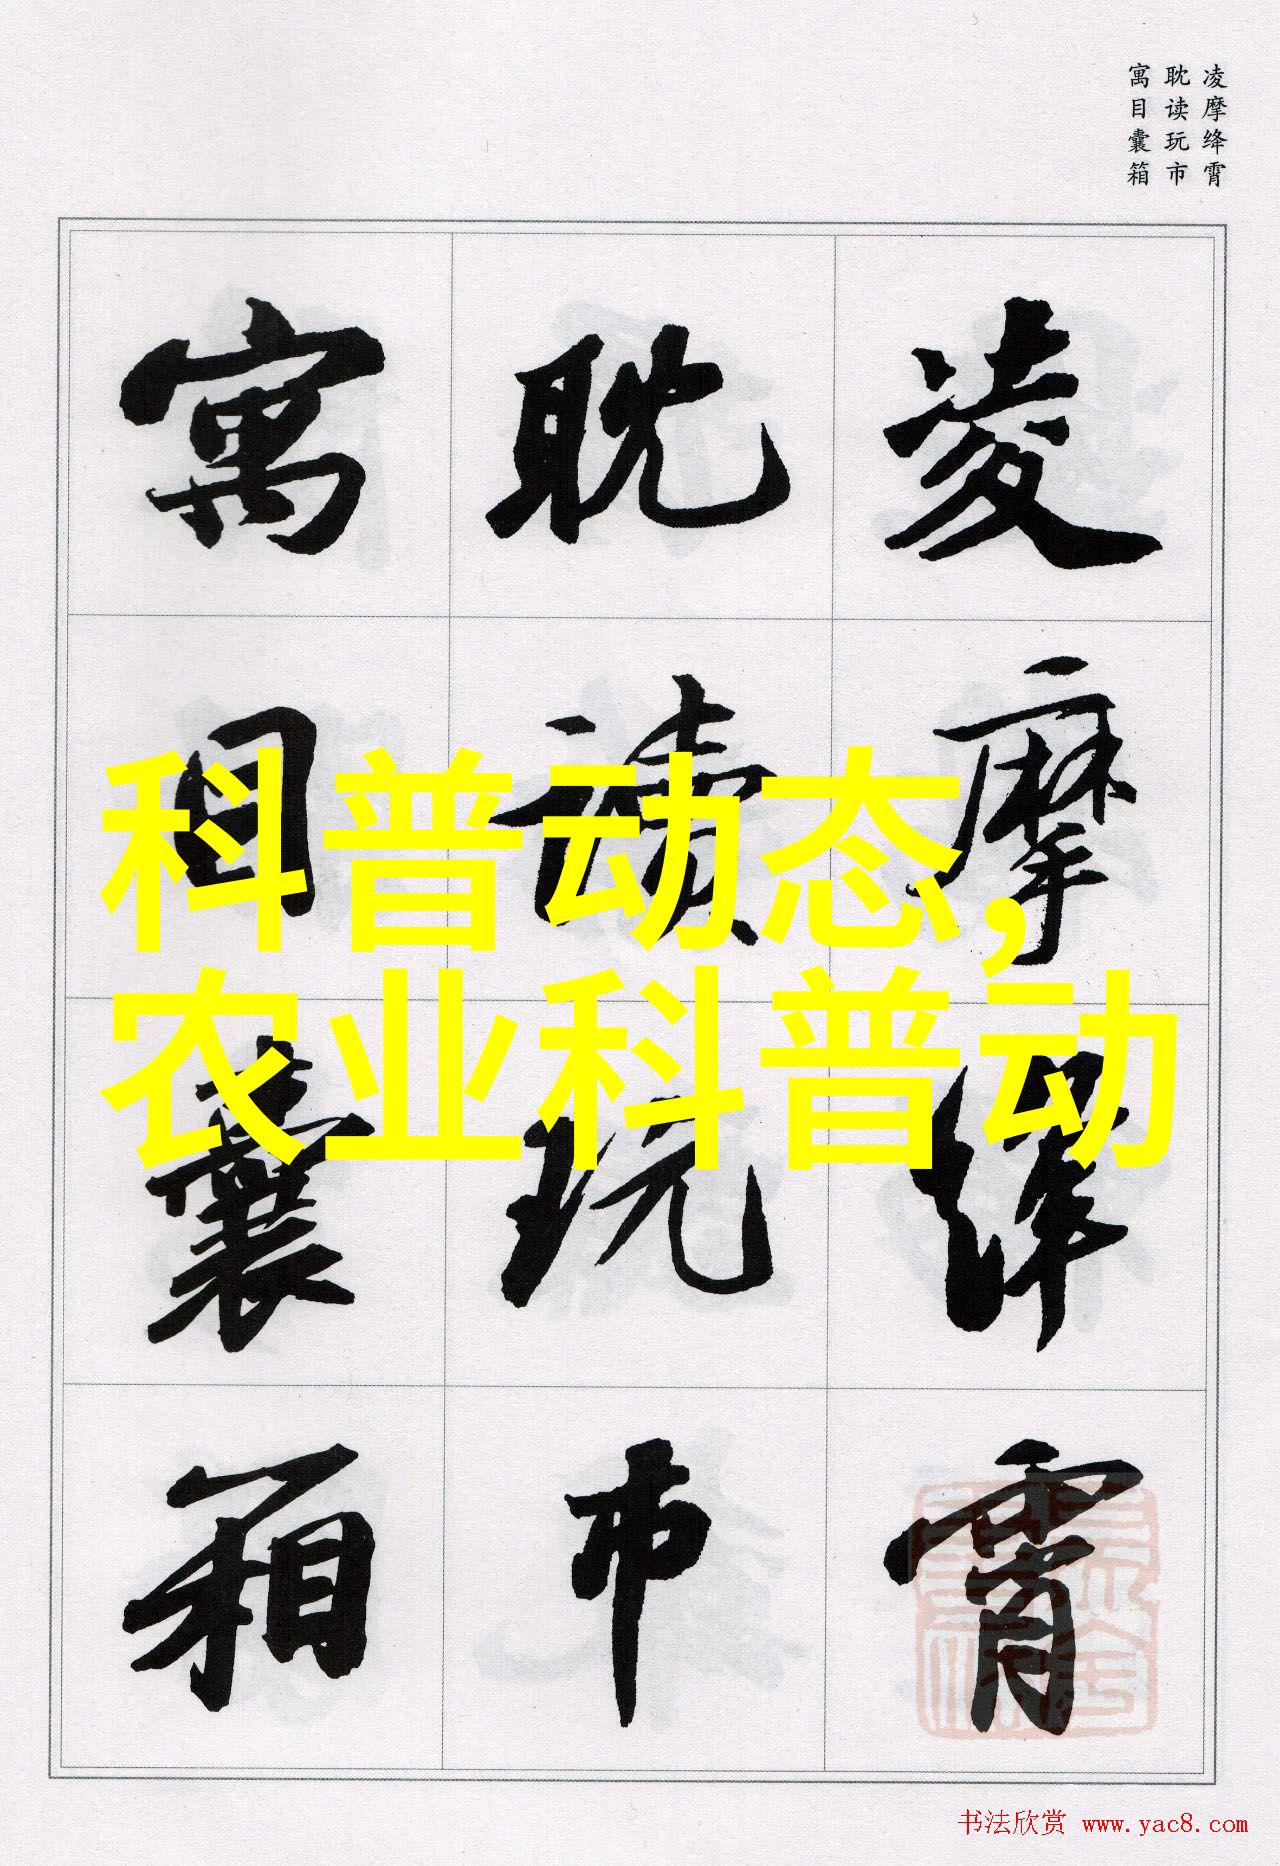 凌摩绛霄
耽读玩市
寓目囊箱
凌摩绛霄
耽读玩市
寓目囊箱
科普动态,
农业科普动
书法欣赏 www.yac8.com